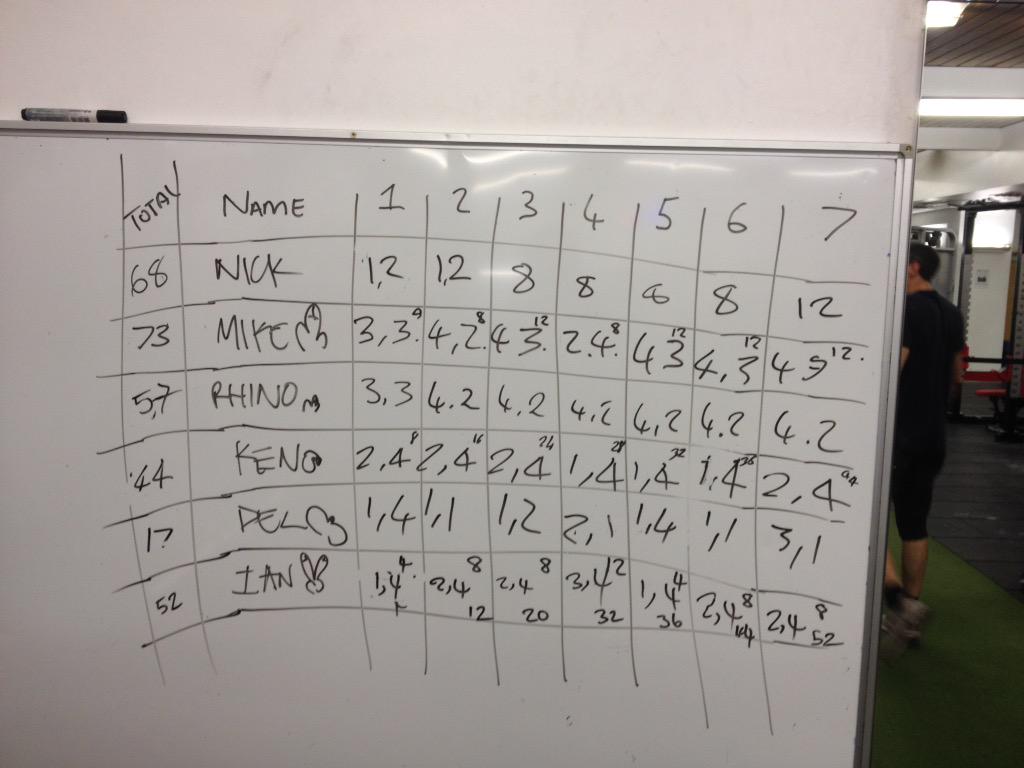 TOTAL NAME 1 2 3 4 5 6 7
68 NICK 1,2 1,2 8 8 6 8 12
73 MIKE 3,3. 9 4,2. 8 4 3. 12 2.4. 8 4 3 12 4,3 12 4 3 12.
57 RHINO 3,3 4.2 4.2 4,2 4,2 4.2 4.2
44 KENO 2,4 8 2,4 16 2,4 24 1,4 28 1,4 32 1,4 36 2,4 44
17 DEL 1,4 1,1 1,2 2,1 1,4 1,1 3,1
52 IAN 1,4 4 2,4 8 2,4 8 3,4 12 1,4 4 2,4 8 2,4 8
12 20 32 36 44 52